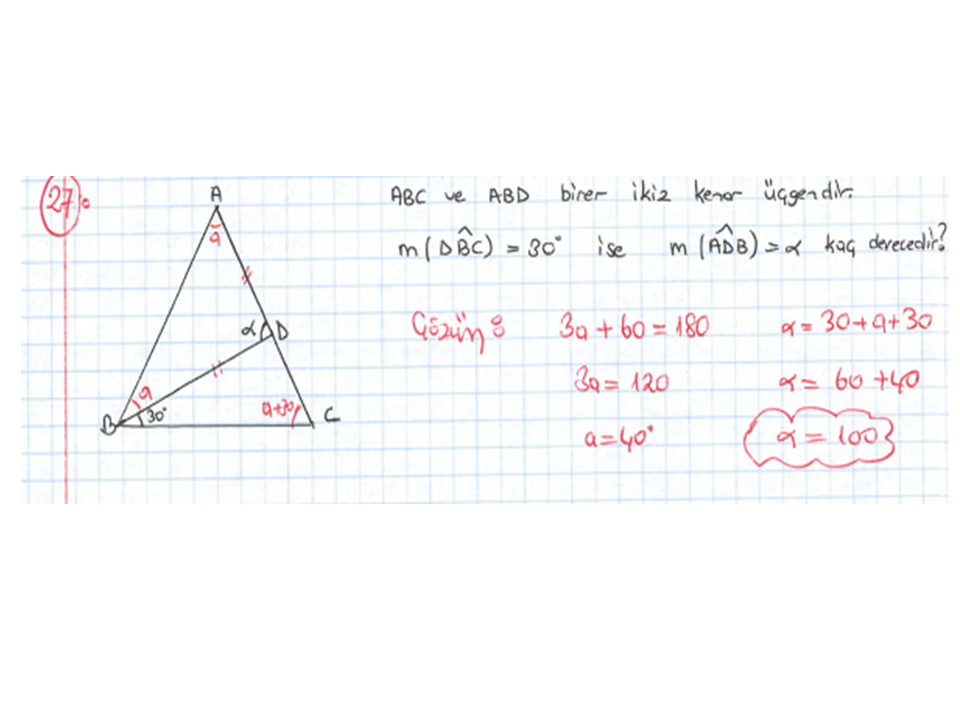 27:
ABC ve ABD birer ikiz kenar üçgendir.
m(DB̂C) = 30° ise m(AD̂B) = α kaç derecedir?
A
a
α D
a
B 30° a+30 C
Çözüm: 3a + 60 = 180 α = 30+a+30
3a = 120 α = 60 + 40
a = 40° α = 100